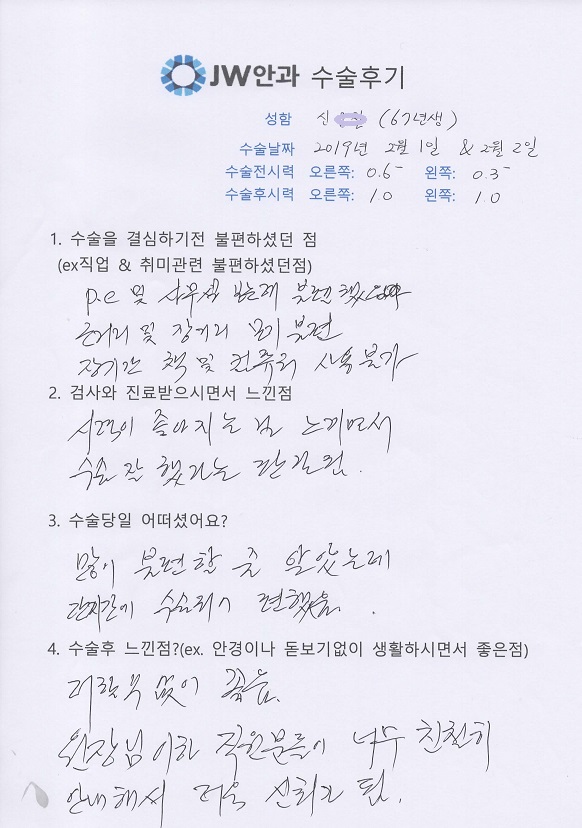 JW안과 수술후기
성함 신 (67년생)
수술날짜 2019년 2월 1일 & 2월 2일
수술전시력 오른쪽: 0.6- 왼쪽: 0.3-
수술후시력 오른쪽: 1.0 왼쪽: 1.0
1. 수술을 결심하기전 불편하셨던 점
(ex직업 & 취미관련 불편하셨던점)
p.c 및 사무실 보는게 불편했
근거리 및 장거리 보기 불편
장기간 책 및 컴퓨터 사용불가
2. 검사와 진료받으시면서 느낀점
시력이 좋아지는 걸 느끼면서
수술 잘 했다는 판단됨.
3. 수술당일 어떠셨어요?
많이 불편할 줄 알았는데
단시간에 수술되어 편했음.
4. 수술후 느낀점?(ex. 안경이나 돋보기없이 생활하시면서 좋은점)
더할 나위 없이 좋음.
원장님 이하 직원분들이 너무 친절히
안내해서 더욱 신뢰가 됨.